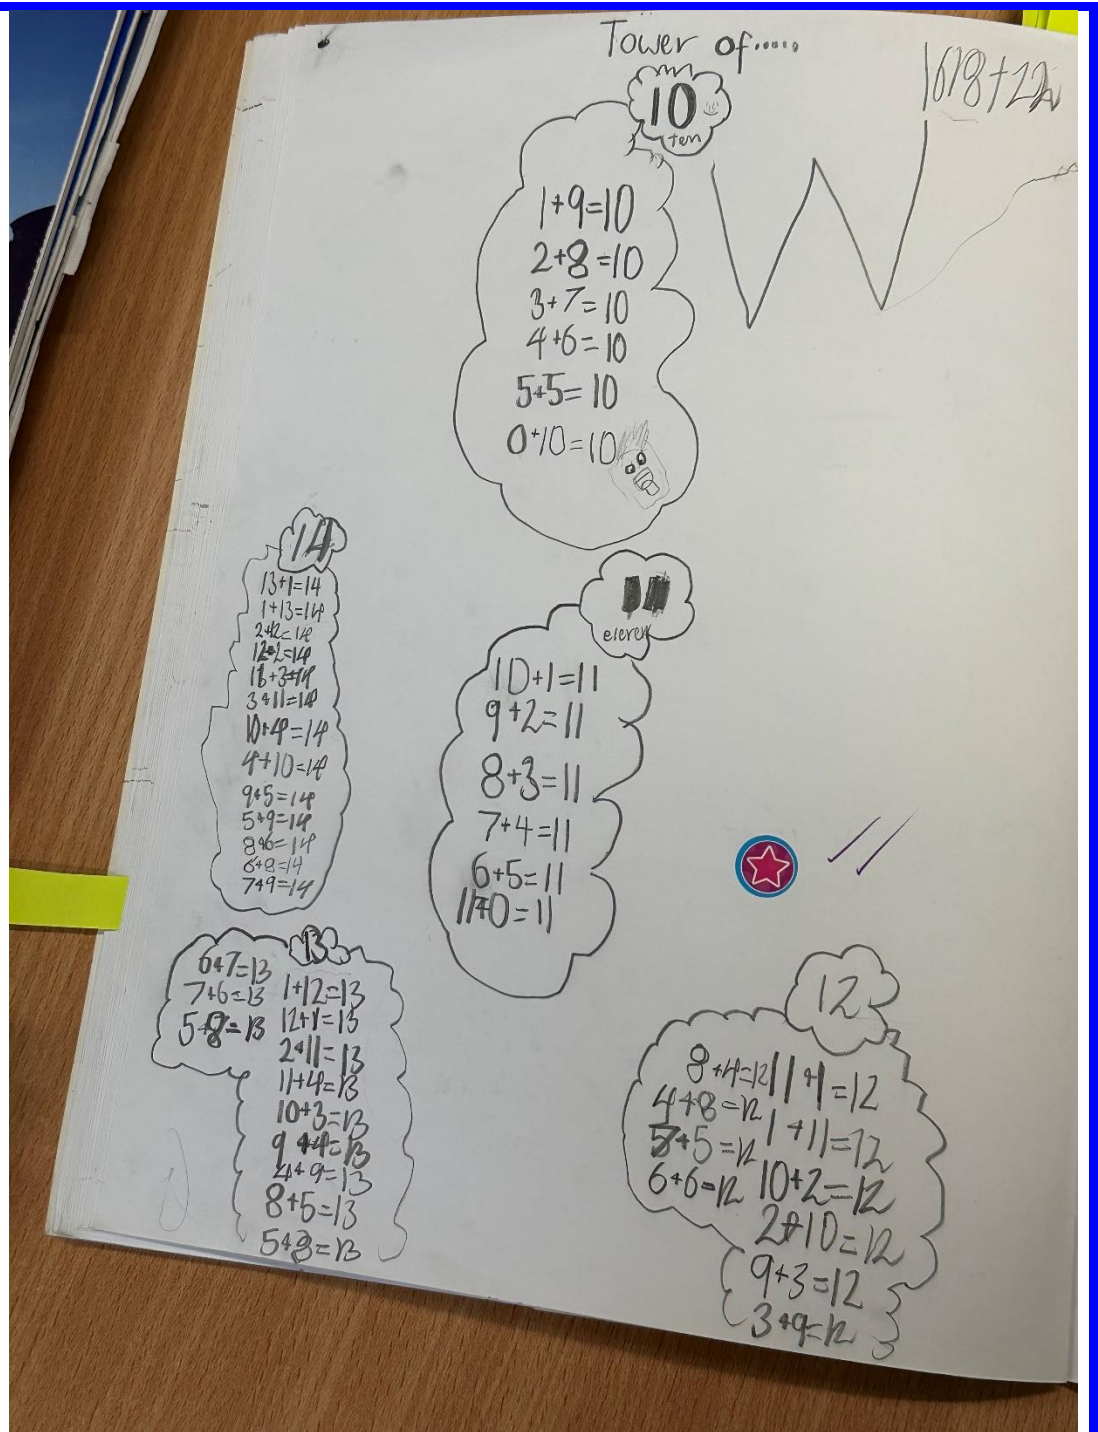 Tower of.....
10
ten
1+9=10
2+8=10
3+7=10
4+6=10
5+5=10
0+10=10
W
14
13+1=14
1+13=14
12+2=14
3+11=14
10+4=14
4+10=14
9+5=14
5+9=14
8+6=14
6+8=14
7+9=14
11
eleven
10+1=11
9+2=11
8+3=11
7+4=11
6+5=11
11+0=11
13
6+7=13
7+6=13
5+8=13
1+12=13
12+1=13
2+11=13
11+4=13
10+3=13
9+4=13
4+9=13
8+5=13
5+8=13
12
8+4=12
4+8=12
6+6=12
11+1=12
1+11=12
10+2=12
2+10=12
9+3=12
3+9=12